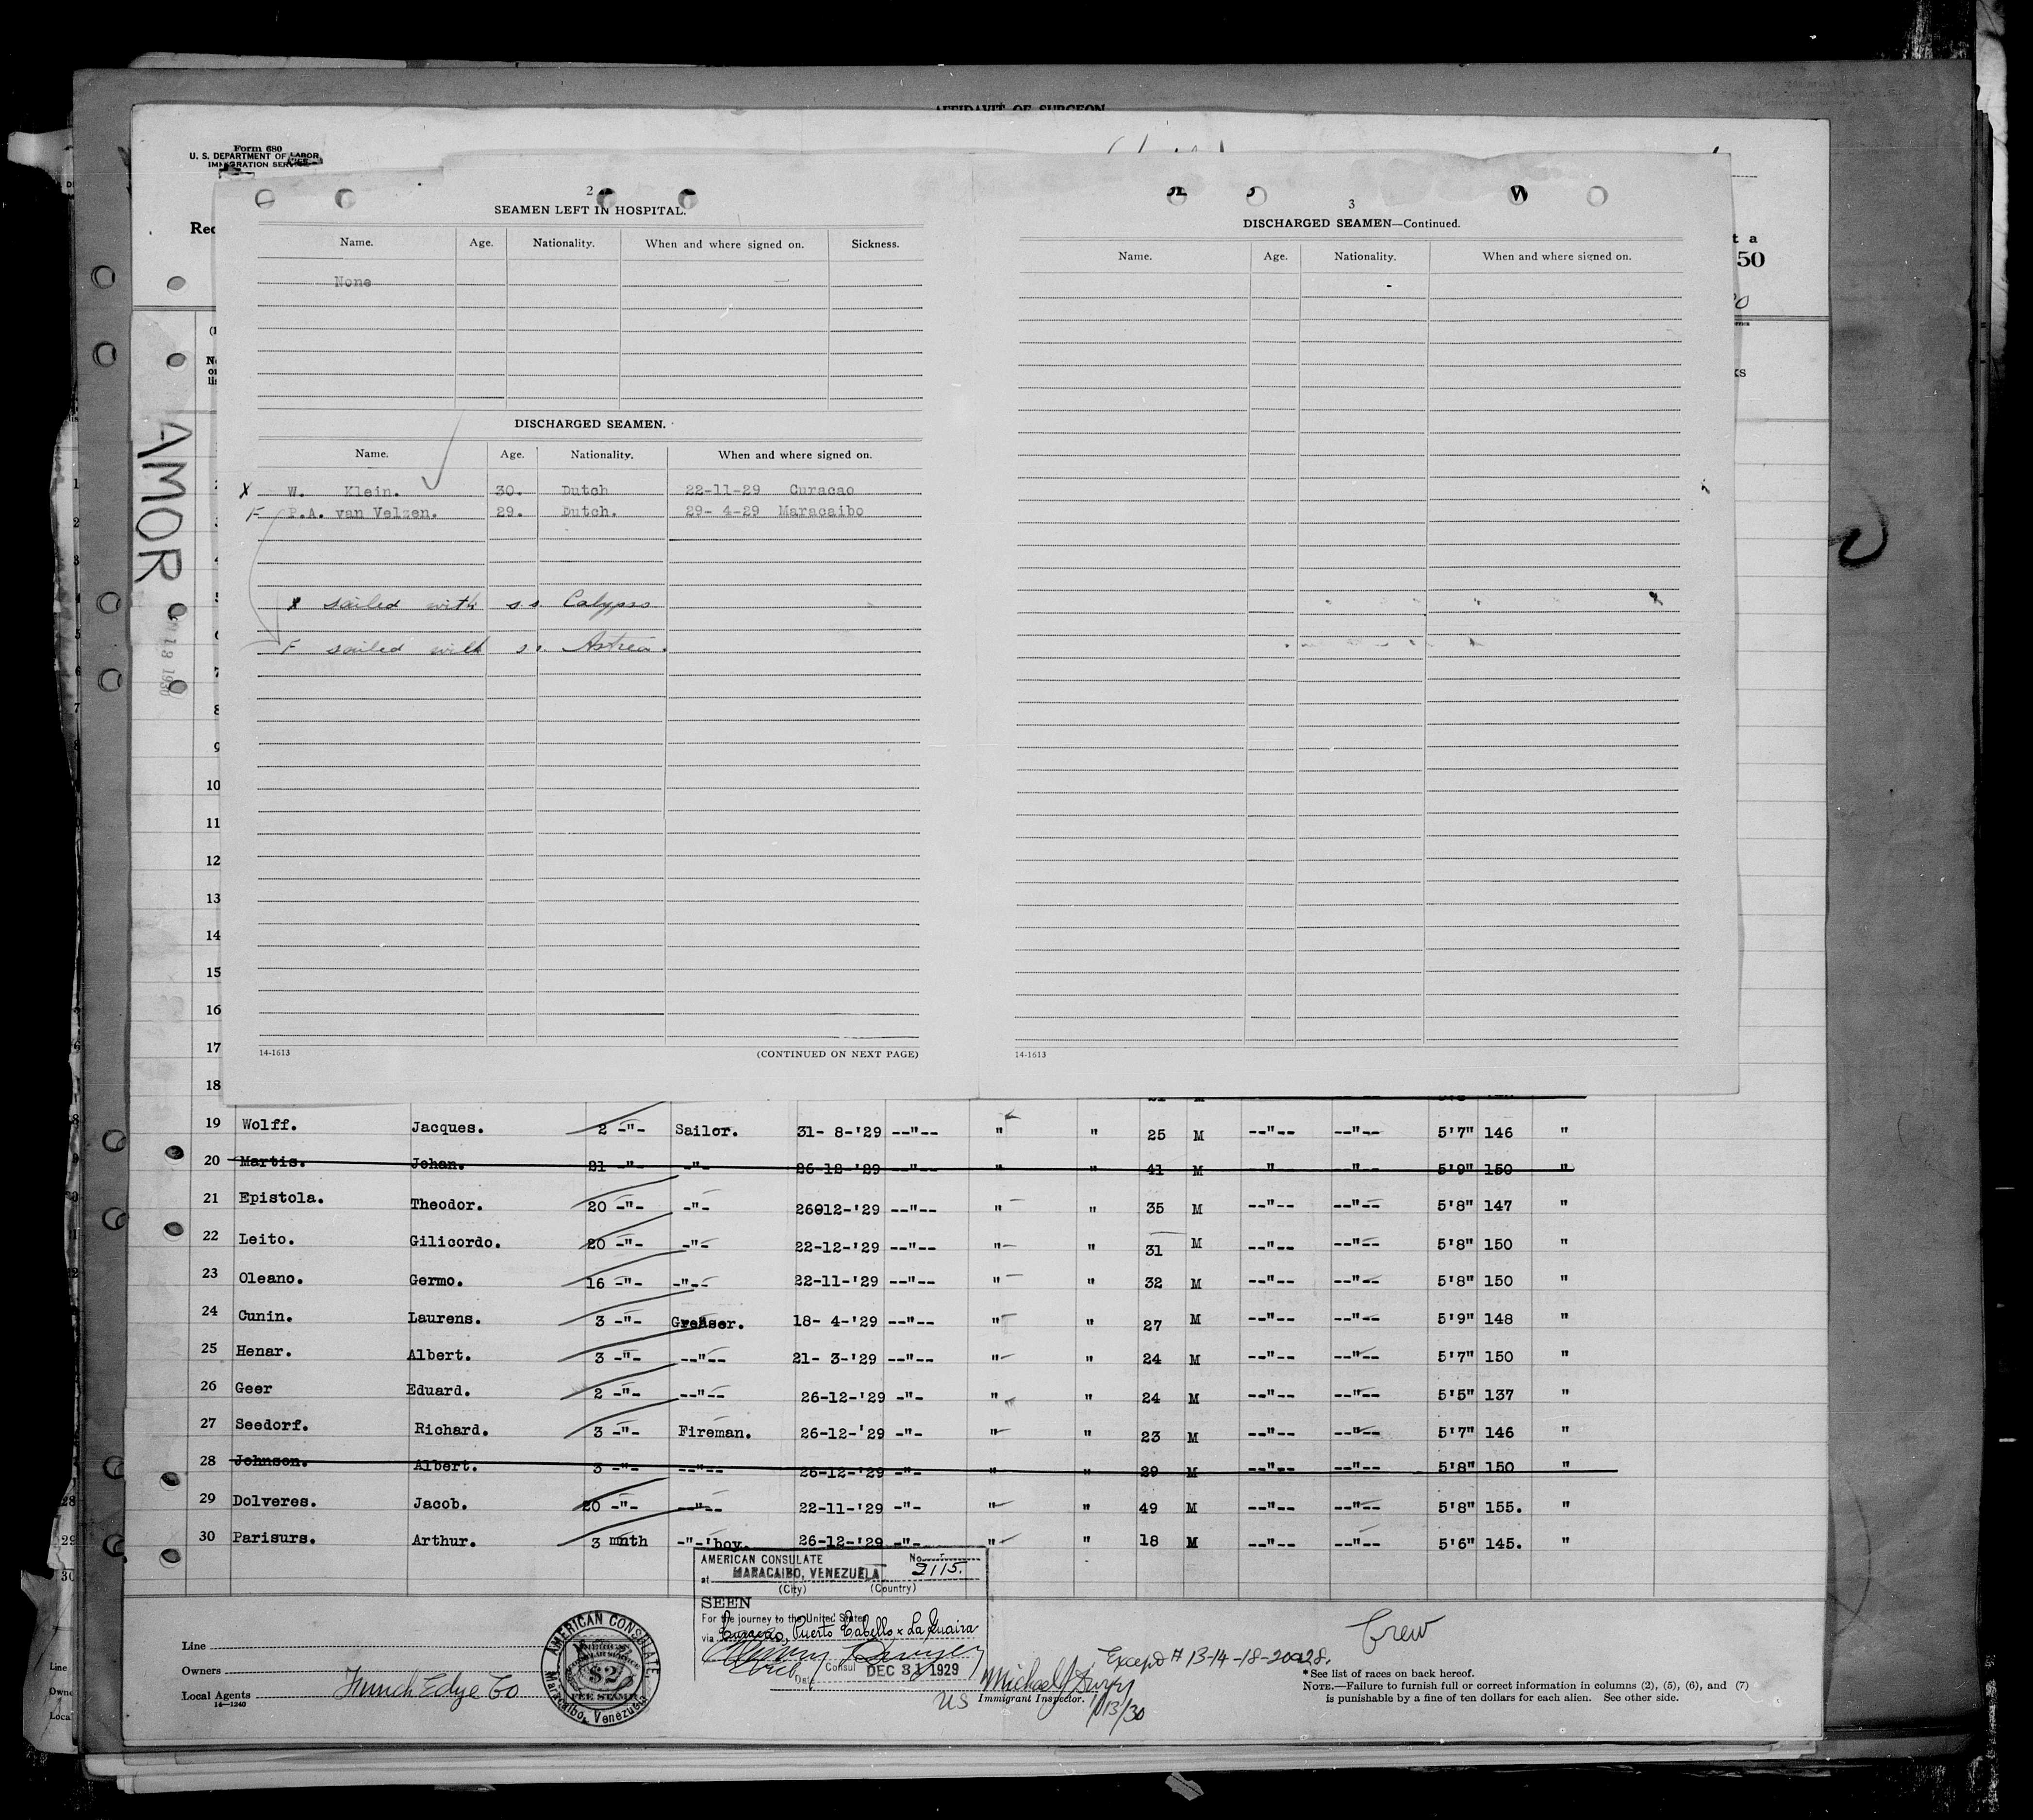 AFFIDAVIT OF SURGEON
Form 680
U. S. DEPARTMENT OF LABOR
IMMIGRATION SERVICE
2
SEAMEN LEFT IN HOSPITAL.
Name. Age. Nationality. When and where signed on. Sickness.
None
DISCHARGED SEAMEN.
Name. Age. Nationality. When and where signed on.
X W. Klein. 30. Dutch 22-11-29 Curacao
F P.A. van Velzen. 29. Dutch. 29- 4-29 Maracaibo
X sailed with s.s. Calypso
F sailed with s.s. Astrea.
14-1613 (CONTINUED ON NEXT PAGE)
3
DISCHARGED SEAMEN—Continued.
Name. Age. Nationality. When and where signed on.
14-1613
t a
50
AMOR
10
11
12
13
14
15
16
17
18
19 Wolff. Jacques. 2 -"- Sailor. 31- 8-'29 --"-- " " 25 M --"-- --"-- 5'7" 146 "
20 Martis. Johan. 21 -"- -"- 26-12-'29 --"-- " " 41 M --"-- --"-- 5'9" 150 "
21 Epistola. Theodor. 20 -"- -"- 26012-'29 --"-- " " 35 M --"-- --"-- 5'8" 147 "
22 Leito. Gilicordo. 20 -"- -"- 22-12-'29 --"-- " " 31 M --"-- --"-- 5'8" 150 "
23 Oleano. Germo. 16 -"- -"-- 22-11-'29 --"-- " " 32 M --"-- --"-- 5'8" 150 "
24 Cunin. Laurens. 3 -"- Greaser. 18- 4-'29 --"-- " " 27 M --"-- --"-- 5'9" 148 "
25 Henar. Albert. 3 -"- --"-- 21- 3-'29 --"-- " " 24 M --"-- --"-- 5'7" 150 "
26 Geer Eduard. 2 -"- --"-- 26-12-'29 -"- " " 24 M --"-- --"-- 5'5" 137 "
27 Seedorf. Richard. 3 -"- Fireman. 26-12-'29 -"- " " 23 M --"-- --"-- 5'7" 146 "
28 Johnson. Albert. 3 -"- --"-- 26-12-'29 -"- " " 29 M --"-- --"-- 5'8" 150 "
29 Dolveres. Jacob. 20 -"- --"-- 22-11-'29 -"- " " 49 M --"-- --"-- 5'8" 155. "
30 Parisurs. Arthur. 3 mnth -"-'boy. 26-12-'29 -"- " " 18 M --"-- --"-- 5'6" 145. "
AMERICAN CONSULATE No. 2115.
at MARACAIBO, VENEZUELA
(City) (Country)
SEEN
For the journey to the United States
via Curacao, Puerto Cabello x La Guaira
Consul DEC 31 1929
Date
AMERICAN CONSULATE
$2
FEE STAMP
Maracaibo, Venezuela
Line
Owners
Local Agents Funch Edye Co
14—1240
Crew
Except # 13-14-18-20&28.
US Immigrant Inspector. 1/13/30
*See list of races on back hereof.
NOTE.—Failure to furnish full or correct information in columns (2), (5), (6), and (7)
is punishable by a fine of ten dollars for each alien. See other side.